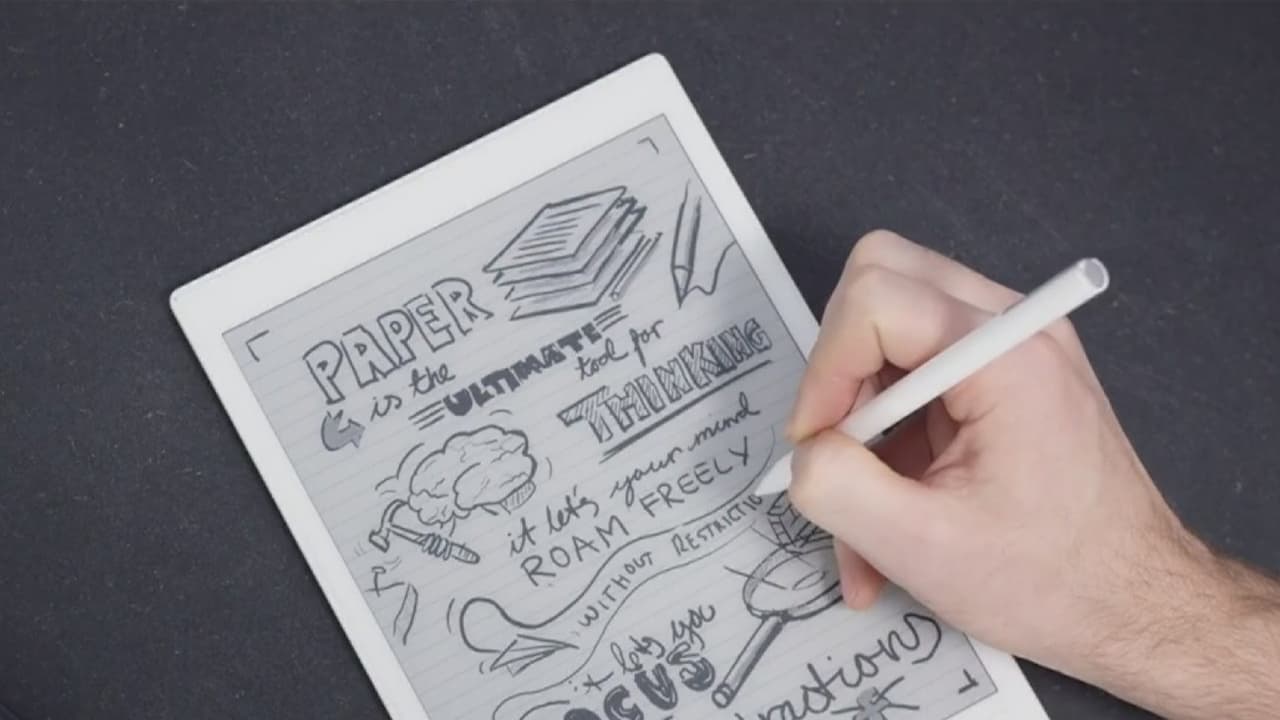 PAPER
is the ULTIMATE tool for
THINKING
it let's your mind
ROAM FREELY
WITHOUT RESTRICTIO
it lets you
OCUS